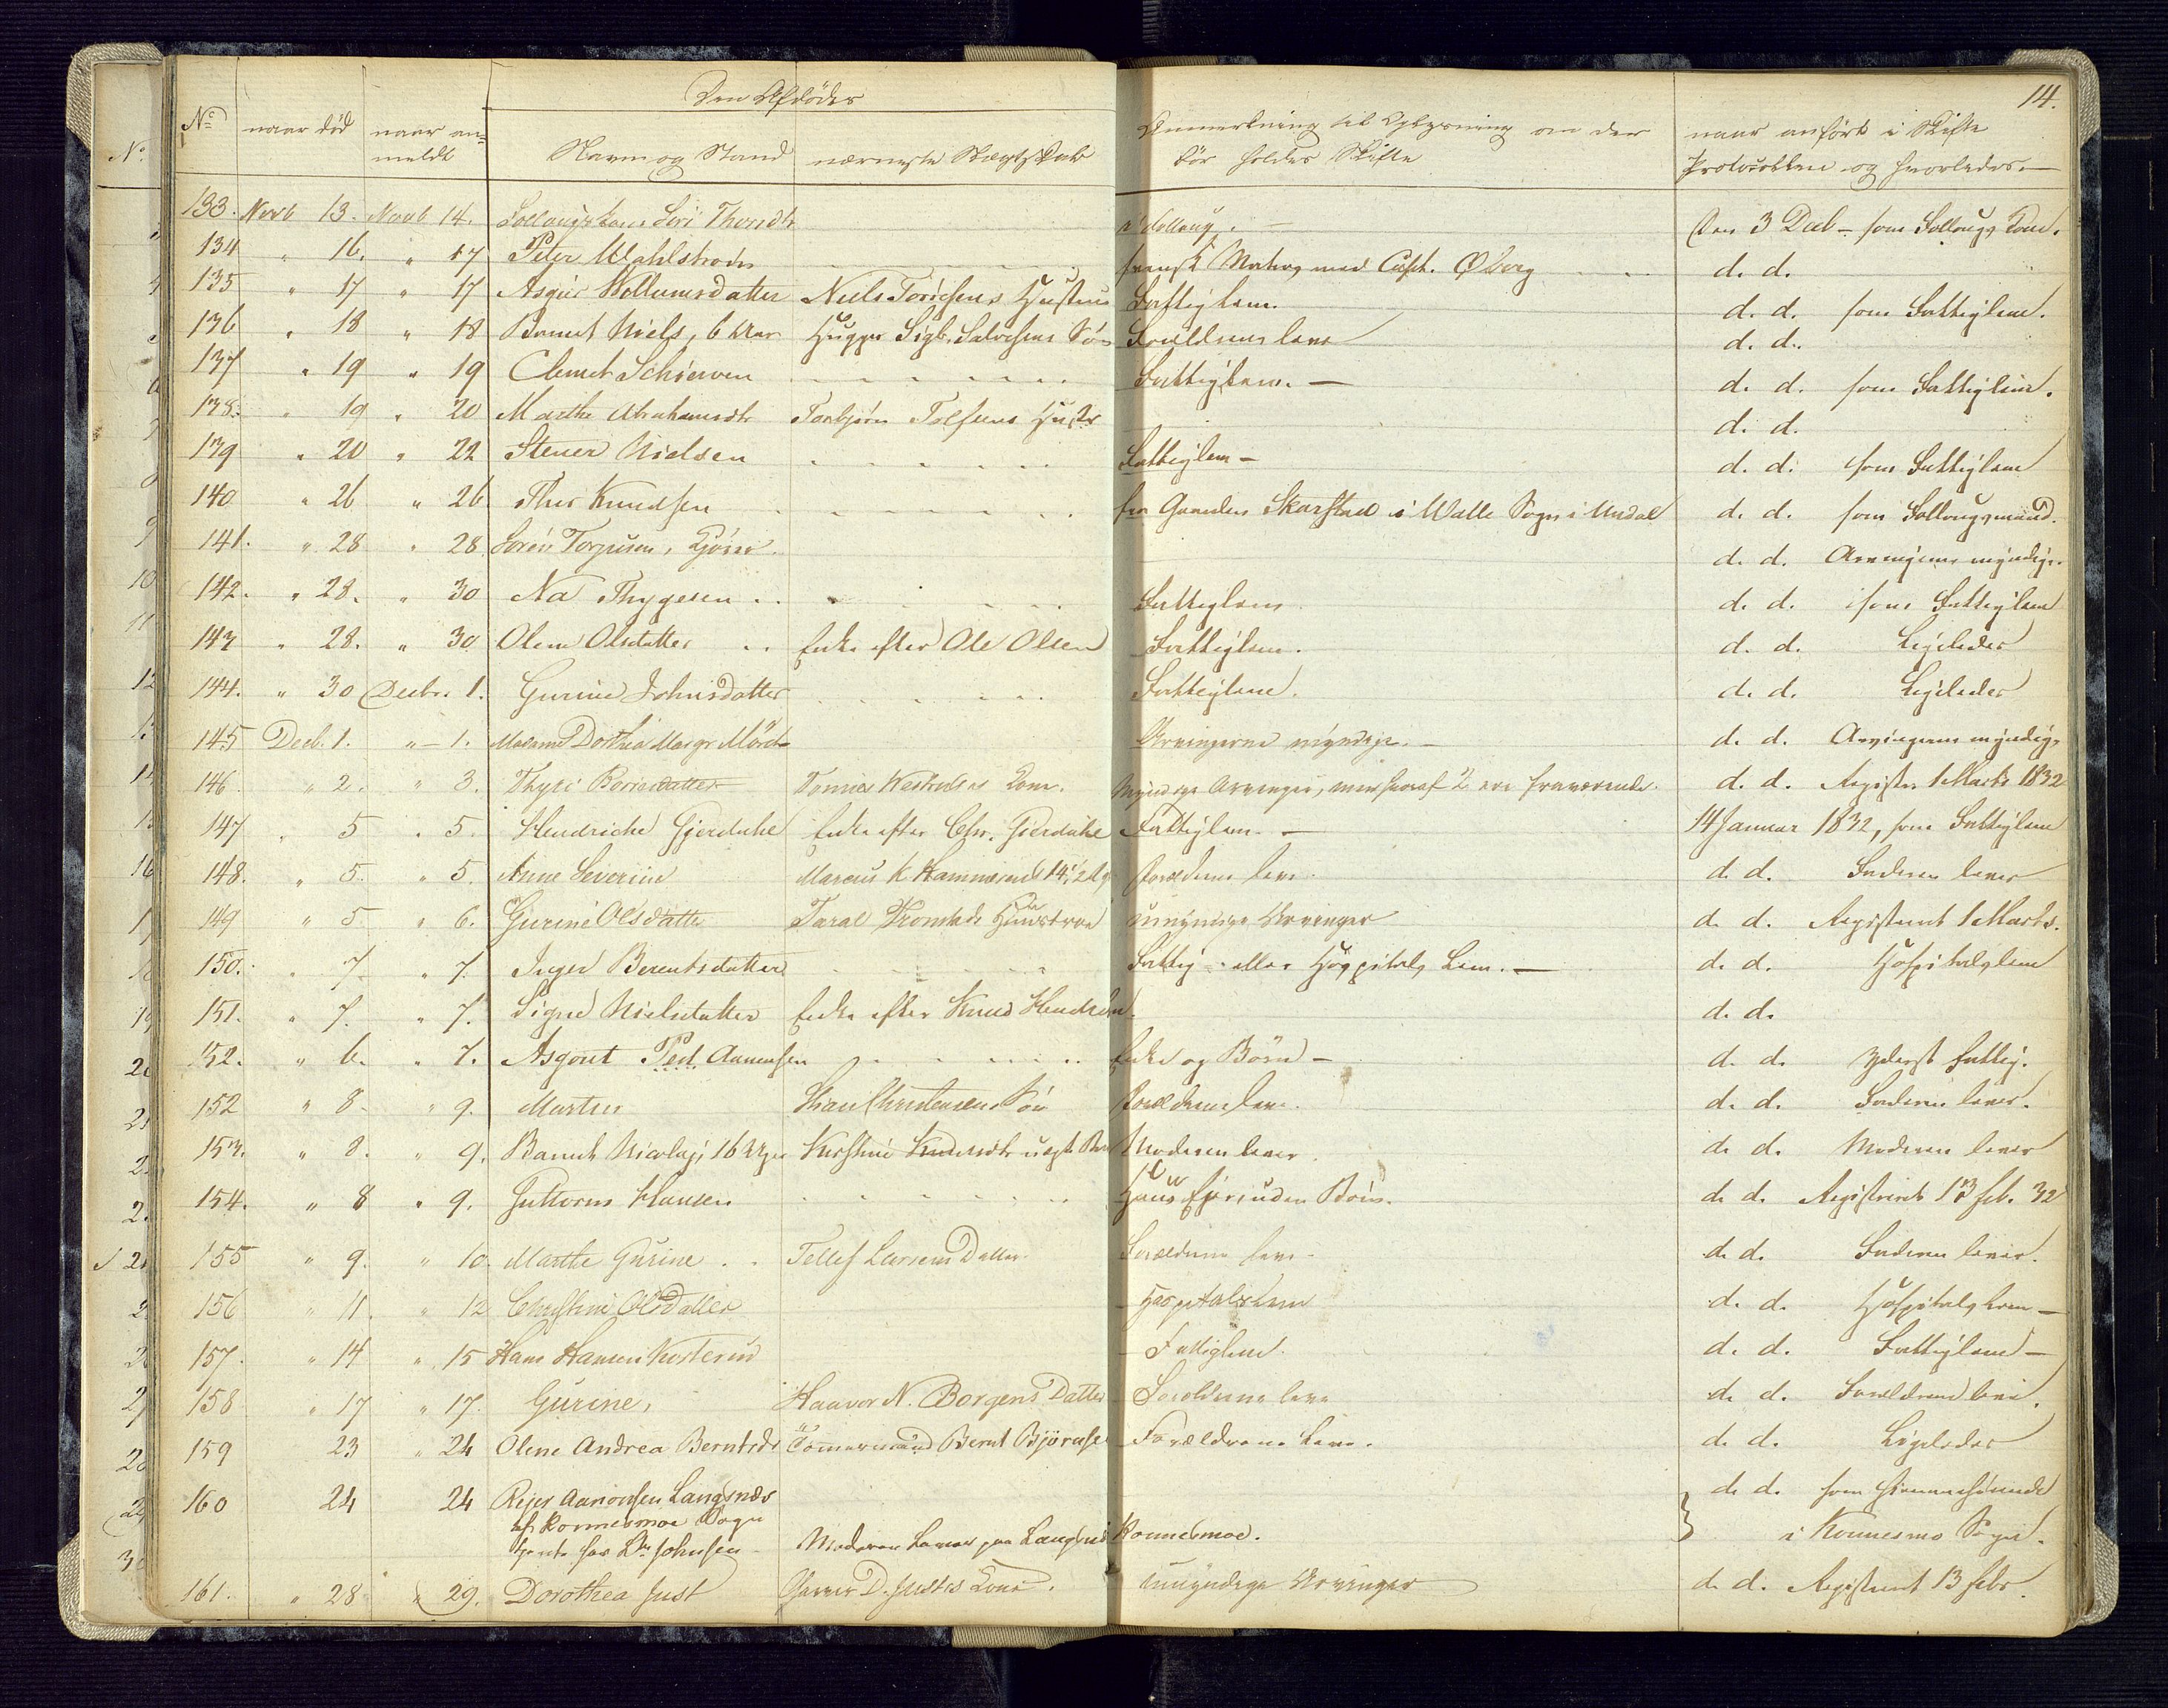 14.
Den Afdødes
No naar død naar an= Navn og Stand nærmeste Slægtskab Anmerkning til Oplysning om der naar anført i Skifte
meldt bør holdes Skifte Protocollen og hvorledes.
133. Novb 13. Novb 14. Lollougskone Siri Thorsdtr i Lolloug. Den 3 Decb – som Lollougs Kone.
134 " 16. " 17 Peter Wahlstrøm svensk Matros med Capt. Øberg d. d.
135 " 17 " 17 Asgier Wellumsdatter Niels Torjesens Hustrue Fattiglem. d. d. som Fattiglem.
136 " 18 " 18 Barnet Niels, 6 Uger Hugger Sigb. Salvesens Søn Forældrene leve d. d.
137 " 19 " 19 Clemet Schierven Fattiglem. – d. d. som Fattiglem.
138. " 19 " 20 Marthe Abrahamsdtr Torbjørn Tolfsens Hustr d. d.
139 " 20 " 22 Stener Nielsen Fattiglem – d. d. som Fattiglem
140 " 26 " 26 Thor Knudsen fra Gaarden Skarstad i Walle Sogn i Undal d. d. som Lollougsmand.
141. " 28 " 28 Søren Torjusen, d. d. Arvingerne myndige.
142. " 28. " 30 Na Thygesen Fattiglem d. d. som Fattiglem
143 " 28. " 30 Olene Olsdatter Enke efter Ole Olsen Fattiglem. d. d. Ligeledes
144. " 30 Decbr. 1. Gurine Johnsdatter Fattiglem. d. d. Ligeledes
145 Decb. 1. " – 1. Madame Dorthea Margr Mörch Arvingerne myndige. – d. d. Arvingerne myndige
146. " 2. " 3. Thyri Boriesdatter Tønnes Westrudes Kone. Myndige Arvinger, men heraf 2 ere fraværende. d. d. Registr. 1 Marts 1832
147 " 5 " 5. Hendriche Gjerduhl Enke efter Chr. Gierduhl Fattiglem. – 14 Januar 1832, som Fattiglem
148. " 5. " 5. Anne Severine Marcus K Hammersmk 14 1/2 Forældrene leve. d. d. Faderen lever
149 " 5 " 6. Gurine Olsdatter Taral Tromstads Huustroe umyndige Arvinger d. d. Registreret 1 Marts.
150. " 7 " 7. Inger Berentsdatter Fattig- eller Hospitals Lem. – d. d. Hospitalslem
151. " 7. " 7. Signe Nielsdatter Enke efter Knud Hendrichsen. d. d.
152. " 6. " 7. Asgout Ped. Aanensen Enke og Børn – d. d. yderst fattig.
152 " 8. " 9. Marten Christensens Søn Forældrene leve. d. d. Faderen lever.
153. " 8. " 9. Barnet Nicolaj, 16 Uger Kirstine Knudsdtr uegte Barn Moderen lever. d. d. Moderen lever
154. " 8 " 9. Guttorm Hansen Huus Eier uden Börn. d. d. Registreret 13 feb. 32
155 " 9. " 10. Marthe Gurine Tellef Larsens Datter Forældrene leve. d. d. Faderen lever.
156 " 11. " 12 Christine Olsdatter Hospitalslem d. d. Hospitals Lem –
157. " 14 " 15 Hans Hansen Kosterud Fattiglem. d. d. Fattiglem –
158 " 17 " 17. Gurine, Haavor N. Borgens Datter Forældrene leve d. d. Forældrene leve.
159 23 " 24 Olene Andrea Berntsdr Tömmermand Bernt Björnsen Forældrene Leve. d. d. Ligeledes
160 24 24 Reijer Aanonsen Langsnæs d. d. som hiemmehørende
af Konnesmoe Sogn i Konnesmo Sogn.
tjente hos Ltn Johnsen – Moderen Lever paa Langsnes Konnesmoe.
161. " 28 " 29. Dorothea Just Garver D. Justes Kone. umyndige Arvinger d. d. Registreret 13 febr.